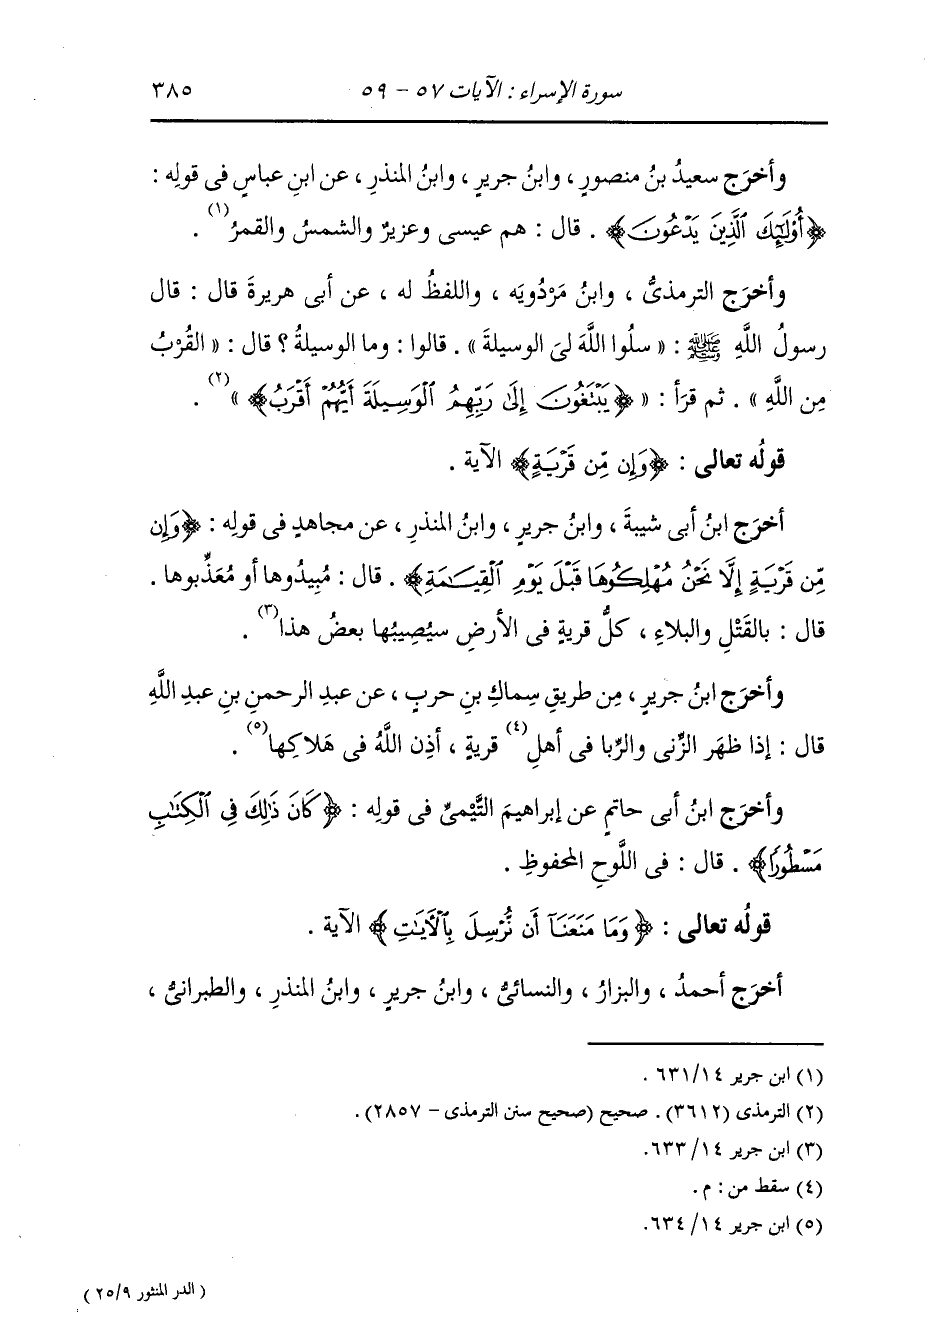 سورة الإسراء : الآيات ٥٧ - ٥٩ ٣٨٥
وأخرَج سعيدُ بنُ منصورٍ ، وابنُ جريرٍ ، وابنُ المنذرِ ، عن ابنِ عباسٍ فى قولِه :
﴿أُوْلَٰٓئِكَ ٱلَّذِينَ يَدْعُونَ﴾ . قال : هم عيسى وعزيرٌ والشمسُ والقمرُ(١) .
وأخرَج الترمذىُّ ، وابنُ مَرْدُويَه ، واللفظُ له ، عن أبى هريرةَ قال : قال
رسولُ اللَّهِ ﷺ : « سلُوا اللَّهَ لىَ الوسيلةَ » . قالوا : وما الوسيلةُ ؟ قال : « القُرْبُ
مِن اللَّهِ » . ثم قرَأ : « ﴿يَبْتَغُونَ إِلَىٰ رَبِّهِمُ ٱلْوَسِيلَةَ أَيُّهُمْ أَقْرَبُ﴾ »(٢) .
قولُه تعالى : ﴿وَإِن مِّن قَرْيَةٍ﴾ الآية .
أخرَج ابنُ أبى شيبةَ ، وابنُ جريرٍ ، وابنُ المنذرِ ، عن مجاهدٍ فى قولِه : ﴿وَإِن
مِّن قَرْيَةٍ إِلَّا نَحْنُ مُهْلِكُوهَا قَبْلَ يَوْمِ ٱلْقِيَٰمَةِ﴾ . قال : مُبِيدُوها أو مُعَذِّبوها .
قال : بالقَتْلِ والبلاءِ ، كلُّ قريةٍ فى الأرضِ سيُصِيبُها بعضُ هذا(٣) .
وأخرَج ابنُ جريرٍ ، مِن طريقِ سماكِ بنِ حربٍ ، عن عبدِ الرحمنِ بنِ عبدِ اللَّهِ
قال : إذا ظهَر الزِّنى والرِّبا فى أهلِ(٤) قريةٍ ، أذِن اللَّهُ فى هَلاكِها(٥) .
وأخرَج ابنُ أبى حاتمٍ عن إبراهيمَ التَّيْمىِّ فى قولِه : ﴿كَانَ ذَٰلِكَ فِى ٱلْكِتَٰبِ
مَسْطُورًا﴾ . قال : فى اللَّوحِ المحفوظِ .
قولُه تعالى : ﴿وَمَا مَنَعَنَآ أَن نُّرْسِلَ بِٱلْأٓيَٰتِ﴾ الآية .
أخرَج أحمدُ ، والبزارُ ، والنسائىُّ ، وابنُ جريرٍ ، وابنُ المنذرِ ، والطبرانىُّ ،
(١) ابن جرير ١٤/ ٦٣١ .
(٢) الترمذى (٣٦١٢) . صحيح (صحيح سنن الترمذى - ٢٨٥٧) .
(٣) ابن جرير ١٤/ ٦٣٣.
(٤) سقط من : م .
(٥) ابن جرير ١٤/ ٦٣٤.
( الدر المنثور ٢٥/٩ )